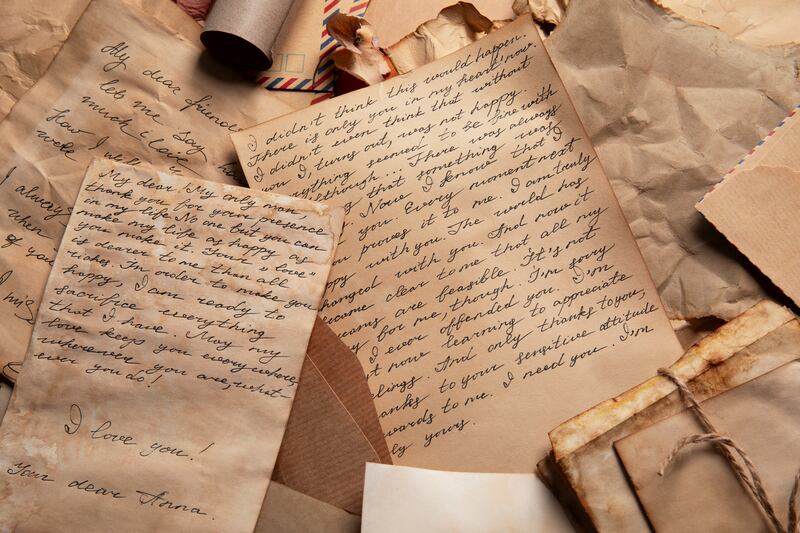 My dear friend
let me say
much i love
How I
week
I always
when
of you
I
My dear. My only man,
thank you for your presence
in my life. No one but you can
make my life as happy as
you make it. Your "love"
is dearer to me than all
riches. In order to make you
happy, I am ready to
sacrifice everything
that I have. May my
love keeps you everywhere
wherever you are, what-
ever you do!
I love you!
Your dear Anna.
I didn't think this would happen.
There is only you in my heart now.
I didn't even think that without
you I, turns out, was not happy.
rything seemed to be fine with
though... There was always
g that something was
Now I know that I
you. Every moment next
proves it to me. I am truly
ppy with you. The world has
hanged with you. And now it
ecame clear to me that all my
reams are feasible. It's not
y for me, though. I'm sorry
I ever offended you. I'm
t now learning to appreciate
elings. And only thanks to you,
anks to your sensitive attitude
wards to me. I need you. I'm
ly yours.